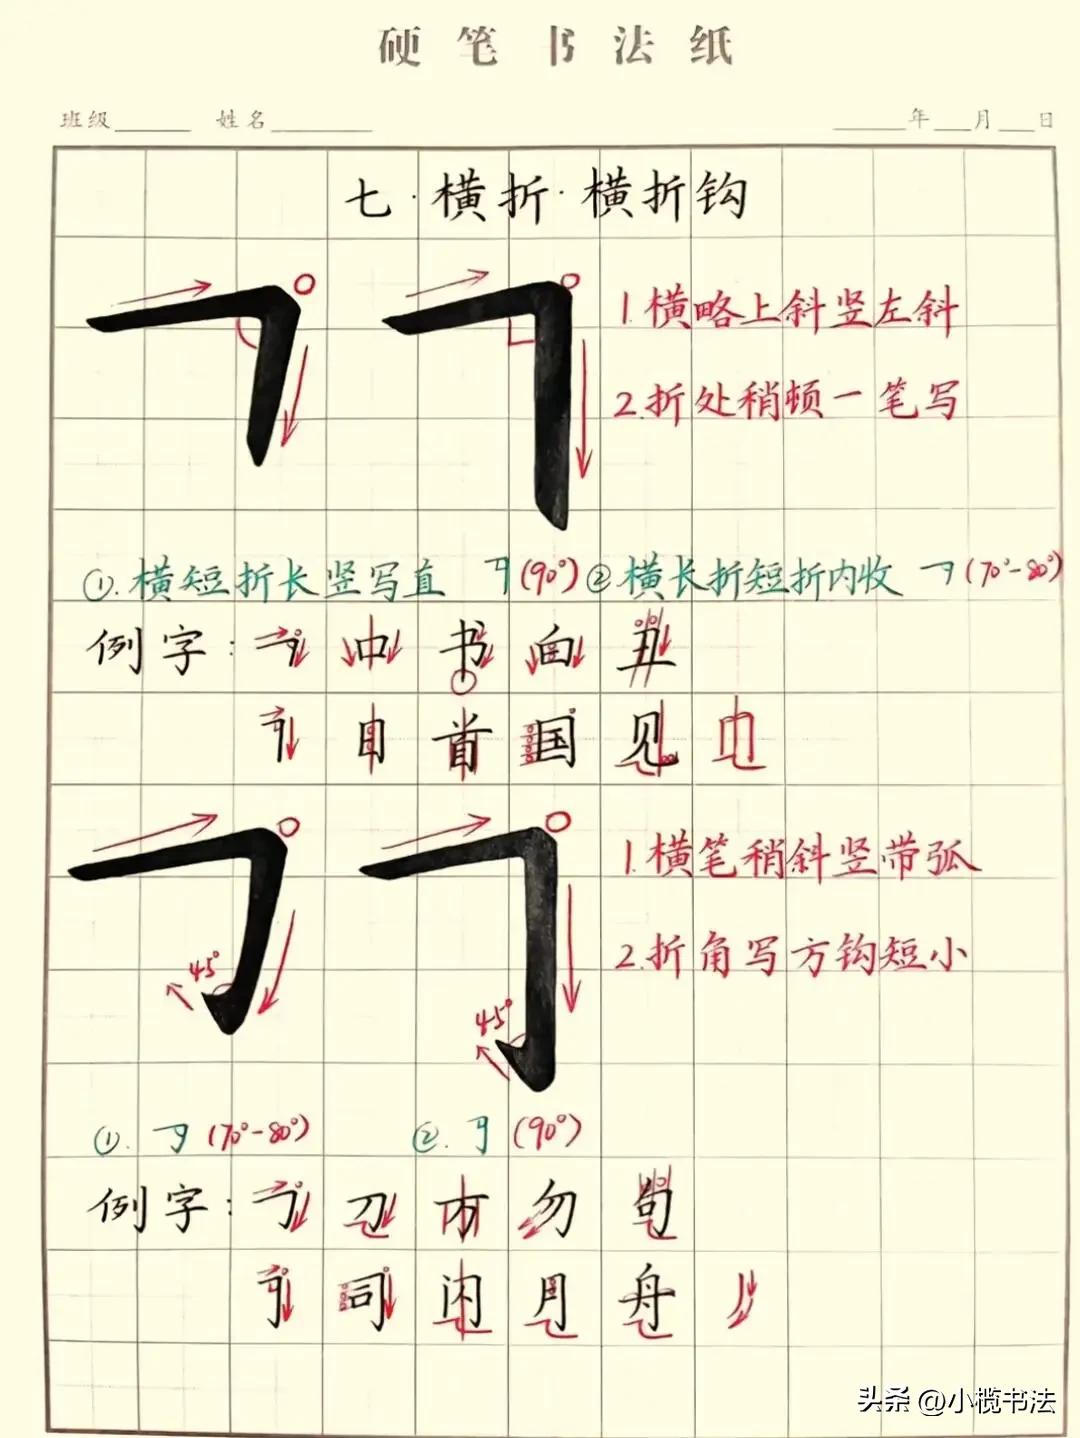 硬笔书法纸
班级 姓名 年 月 日
七·横折·横折钩
1.横略上斜竖左斜
2.折处稍顿一笔写
①.横短折长竖写直 𠃍(90°) ②横长折短折内收 𠃍(70°-80°)
例字: 𠃍 中 书 白 丑
𠃍 目 首 国 见
1.横笔稍斜竖带弧
45°
2.折角写方钩短小
45°
①. 𠃌 (70°-80°) ②. 𠃌 (90°)
例字: 𠃌 刀 方 勿 句
𠃌 司 闪 月 舟
头条 @小榄书法